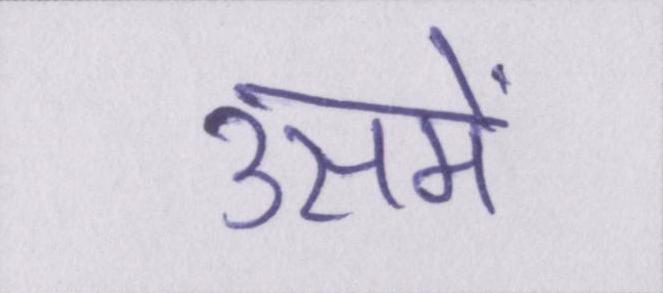 उसमें